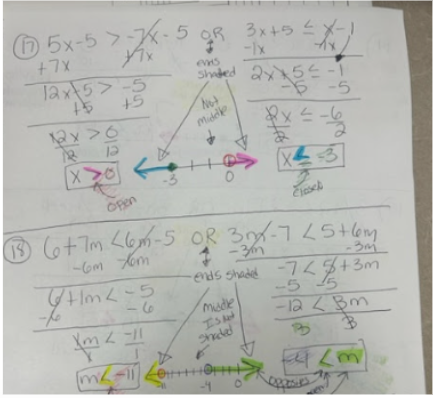 17) 5x-5 > -7x-5 OR 3x+5 ≤ x-1
+7x +7x ends shaded -1x -1x
12x-5 > -5 2x+5 ≤ -1
+5 +5 Not middle -5 -5
12x > 0 2x ≤ -6
12 12 2 2
x > 0 -3 0 x ≤ -3
open closed
18) 6+7m < 6m-5 OR 3m-7 < 5+6m
-6m -6m -3m -3m
ends shaded -7 < 5+3m
6+1m < -5 -5 -5
-6 -6 Middle Is Not shaded -12 < 3m
1m < -11 3 3
1 1
m < -11 -11 -4 0 -4 < m
opposites